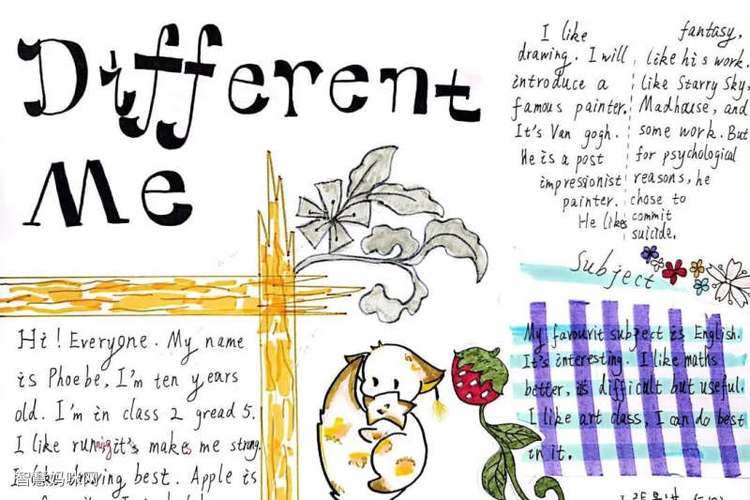 Different
Me
Hi! Everyone. My name
is Phoebe, I'm ten years
old. I'm in class 2 gread 5.
I like runing it's makes me strong.
best. Apple is
智慧妈咪网
I like
drawing. I will
introduce a
famous painter.
It's Van gogh.
He is a post
impressionist
painter.
He likes
fantasy,
like his work.
like Starry Sky,
Madhouse, and
some work. But
for psychological
reasons, he
chose to
commit
suicide.
Subject
My favourit subject is English.
It's interesting. I like maths
better, is difficult but useful.
I like art class, I can do best
in it.